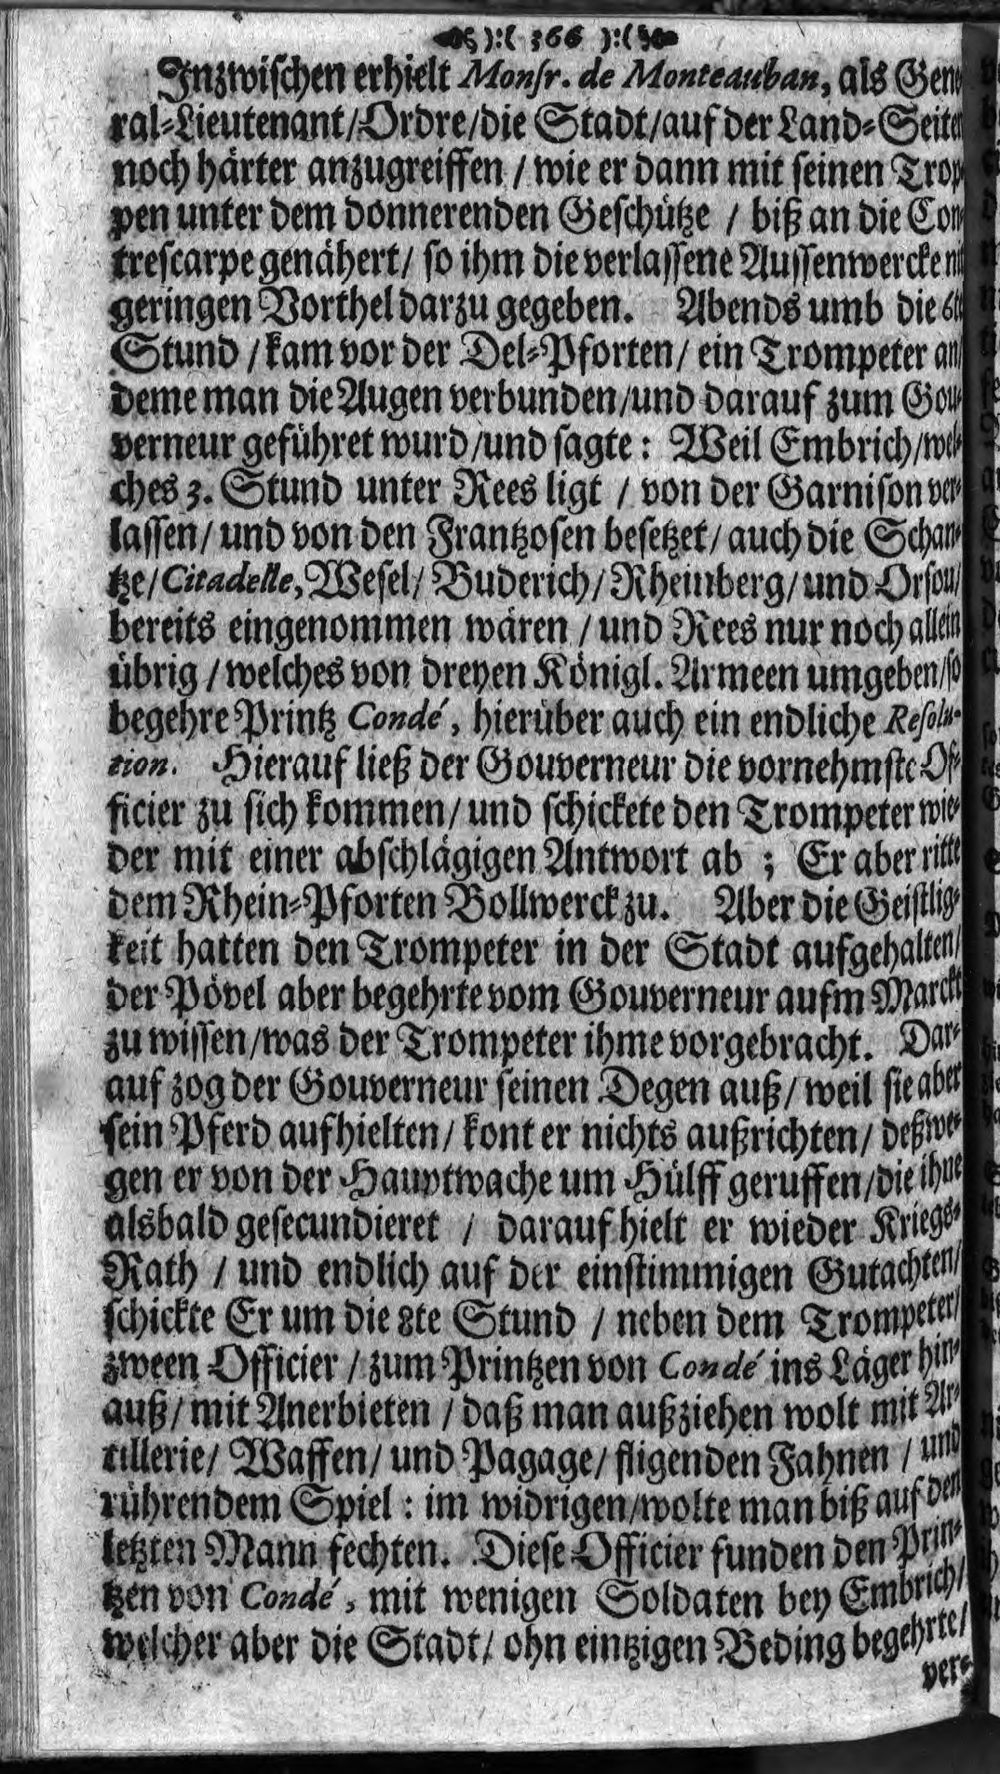 ):( 366 ):(
Inzwiſchen erhielt Monſr. de Monteauban, als Gene-
ral-Lieutenant/Ordre/die Stadt/auf der Land-Seiten
noch härter anzugreiffen / wie er dann mit ſeinen Trop-
pen unter dem donnerenden Geſchütze / biß an die Con-
treſcarpe genähert/ ſo ihm die verlaſſene Auſſenwercke mit
geringen Vorthel darzu gegeben. Abends umb die 6te
Stund / kam vor der Del-Pforten/ ein Trompeter an/
deme man die Augen verbunden/und darauf zum Gou-
verneur geführet wurd/und ſagte: Weil Embrich/wel-
ches 3. Stund unter Rees ligt / von der Garniſon ver-
laſſen/ und von den Frantzoſen beſetzet/ auch die Schan-
tze/ Citadelle, Weſel/ Buderich/ Rheinberg/ und Orſou/
bereits eingenommen wären / und Rees nur noch allein
übrig / welches von dreyen Königl. Armeen umgeben/ſo
begehre Printz Condé, hierüber auch ein endliche Reſolu-
tion. Hierauf ließ der Gouverneur die vornehmſte Of-
ficier zu ſich kommen/ und ſchickete den Trompeter wie-
der mit einer abſchlägigen Antwort ab ; Er aber ritte
dem Rhein-Pforten Bollwerck zu. Aber die Geiſtlig-
keit hatten den Trompeter in der Stadt aufgehalten/
der Pövel aber begehrte vom Gouverneur aufm Marckt
zu wiſſen/was der Trompeter ihme vorgebracht. Dar-
auf zog der Gouverneur ſeinen Degen auß/ weil ſie aber
ſein Pferd aufhielten/ kont er nichts außrichten/ deßwe-
gen er von der Hauptwache um Hülff geruffen/die ihne
alsbald geſecundieret / darauf hielt er wieder Kriegs-
Rath / und endlich auf der einſtimmigen Gutachten/
ſchickte Er um die 8te Stund / neben dem Trompeter/
zween Officier / zum Printzen von Condé ins Läger hin-
auß/ mit Anerbieten / daß man außziehen wolt mit Ar-
tillerie/ Waffen/ und Pagage/ fligenden Fahnen / und
rührendem Spiel: im widrigen/wolte man biß auf den
letzten Mann fechten. Dieſe Officier funden den Prin-
tzen von Condé, mit wenigen Soldaten bey Embrich/
welcher aber die Stadt/ ohn eintzigen Beding begehrte/
ver-